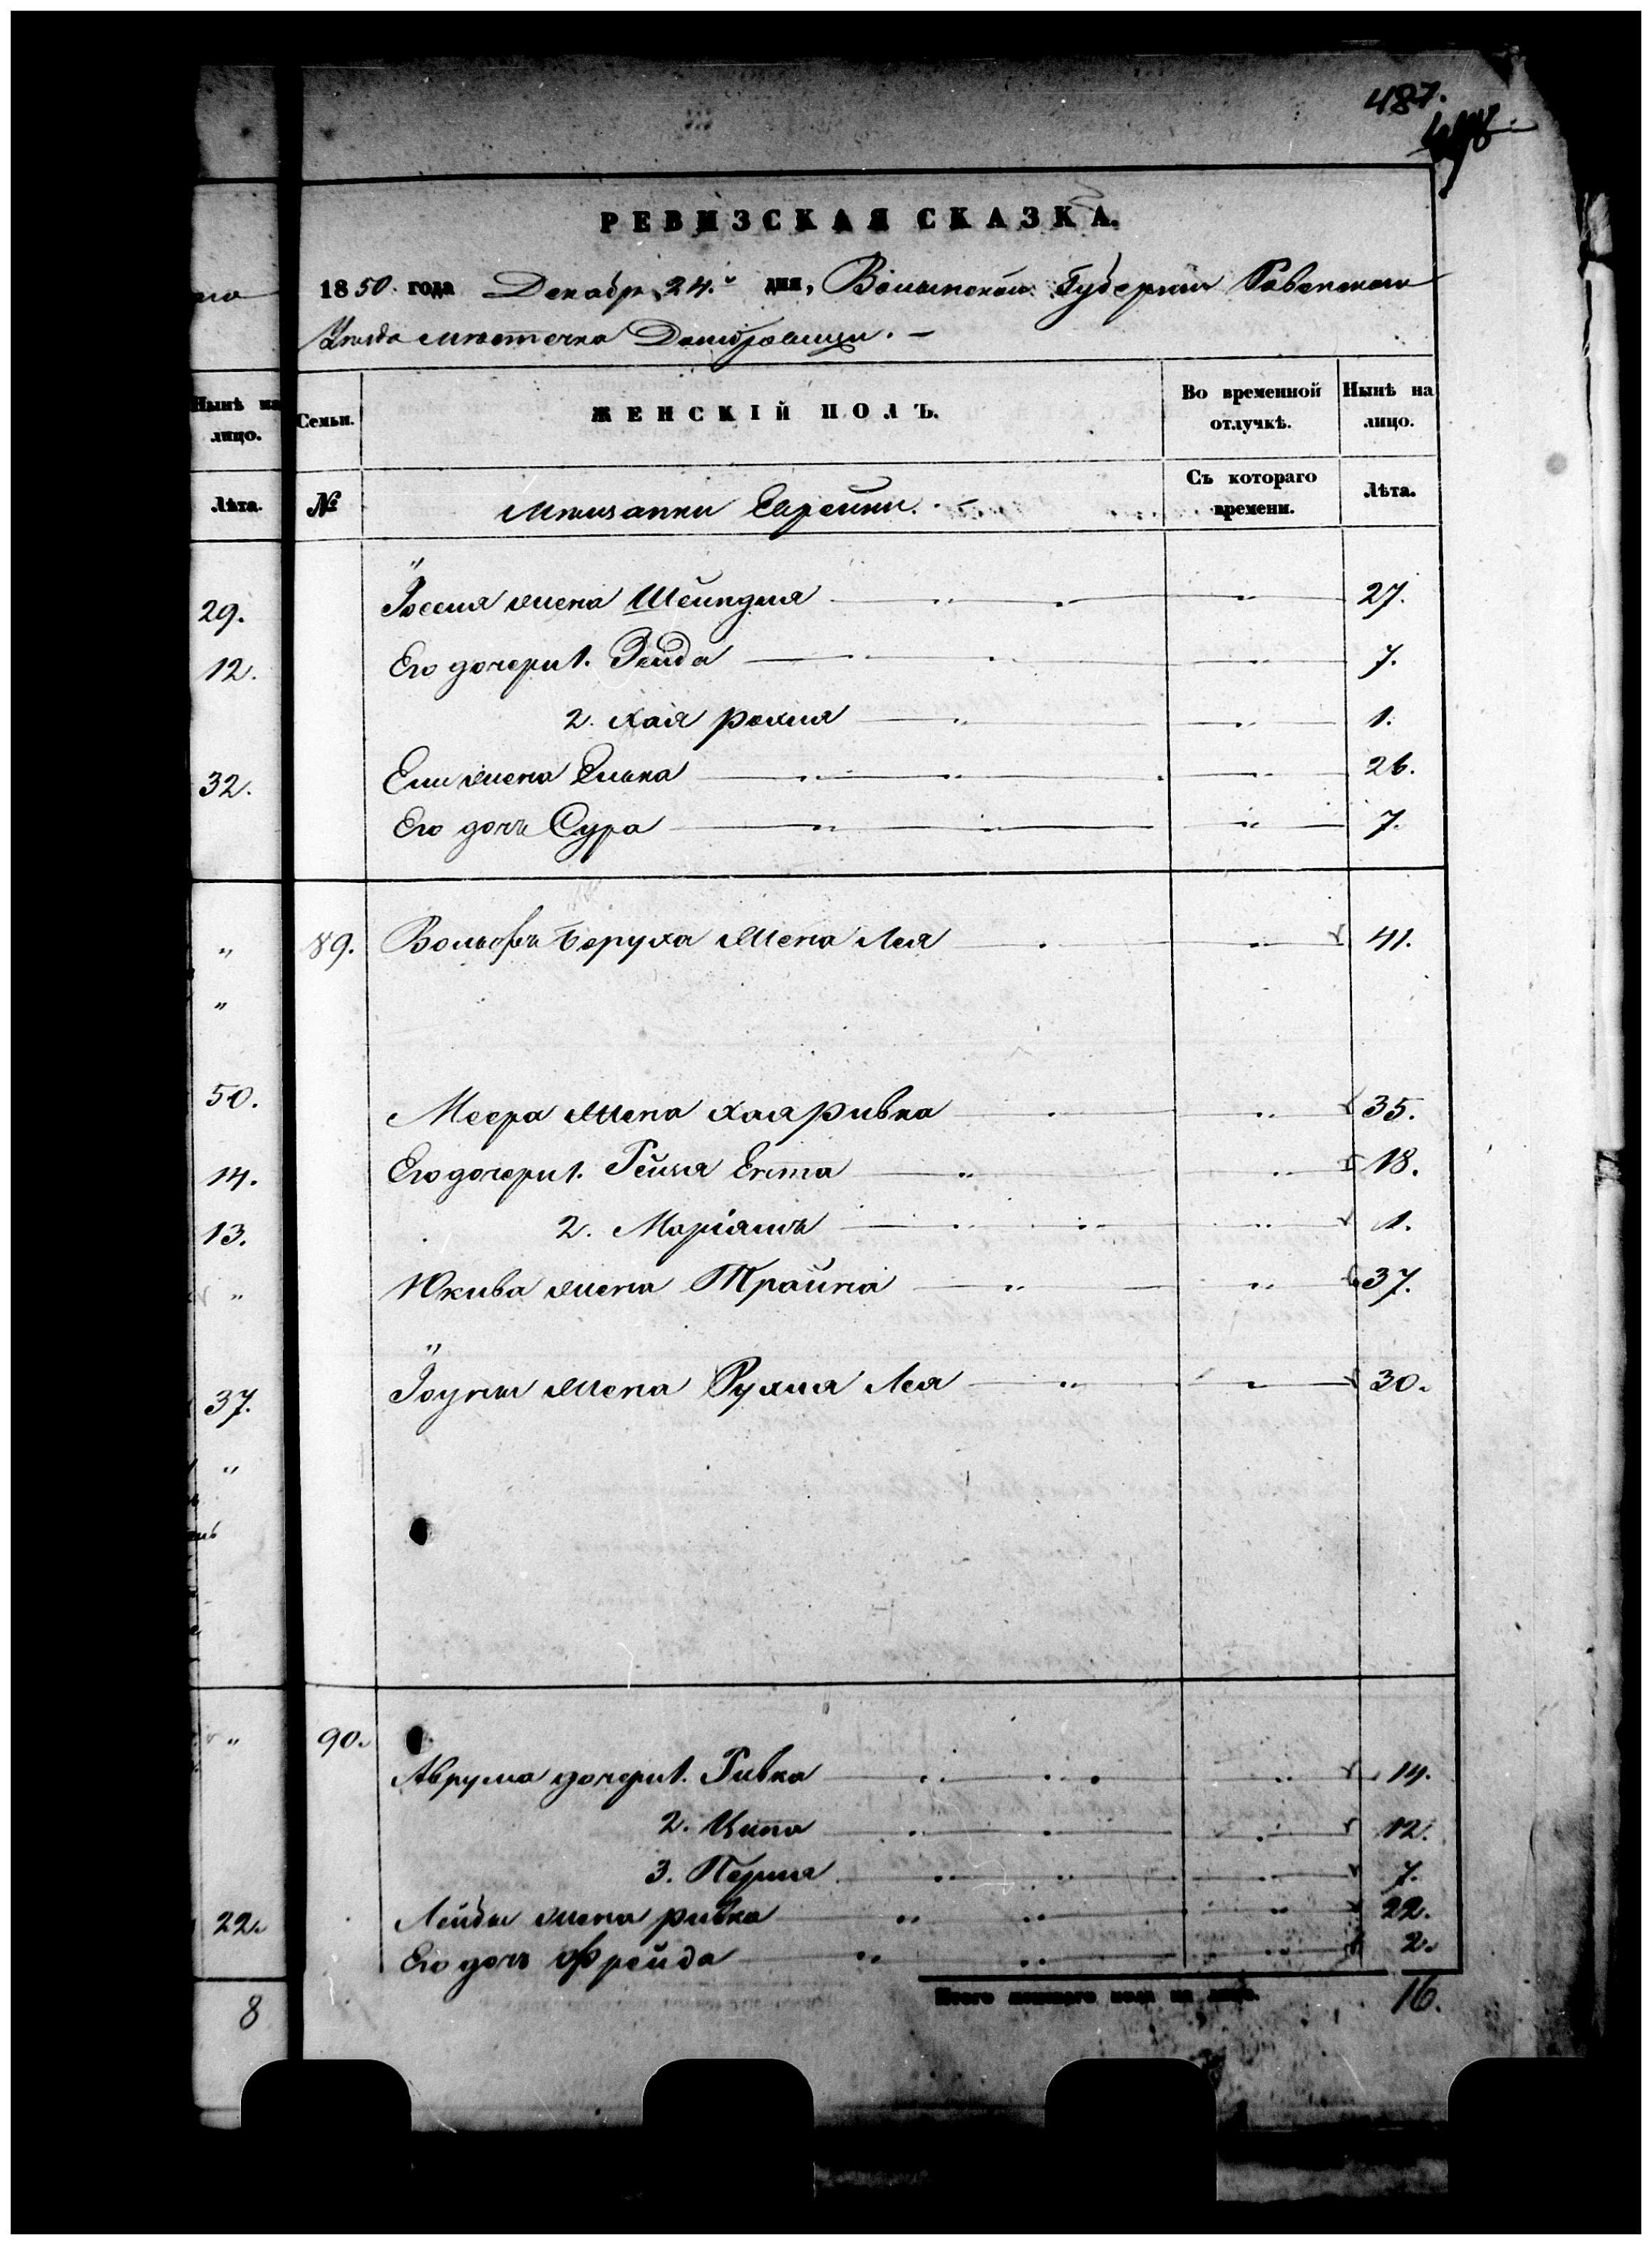 487.
РЕВИЗСКАЯ СКАЗКА.
1850 года Декабр. 24.го дня, Волынской Губернии Ровенского
Уезда местечка Домбровицы. —
Нынѣ на лицо.
Семьи.
ЖЕНСКІЙ ПОЛЪ.
Во временной отлучкѣ.
Нынѣ на лицо.
Лѣта.
№
Мѣщанки Еврейки.
Съ котораго времени.
Лѣта.
29. Іоселя жена Шейндля " " 27.
12. Его дочери 1. Зельда " 7.
2. Хая Рохля " 1.
32. Ели жена Элька " 26.
Его дочь Сура " 7.
" 89. Вольфъ Боруха жена Лея " 41.
"
50. Меера жена Хая Ривка " 35.
14. Его дочери 1. Рейзя Ента " 18.
13. 2. Маріямъ " 1.
" Юкива жена Трайна " 37.
37. Іоуны жена Рухля Лея " 30.
"
" 90.
Аврума дочери 1. Ривка " 14.
2. Ципа " 12.
3. Перля " 7.
22. Лейбы жена Ривка " 22.
Его дочь Фрейда " 2.
8 Итого женскаго пола на лицо. 16.